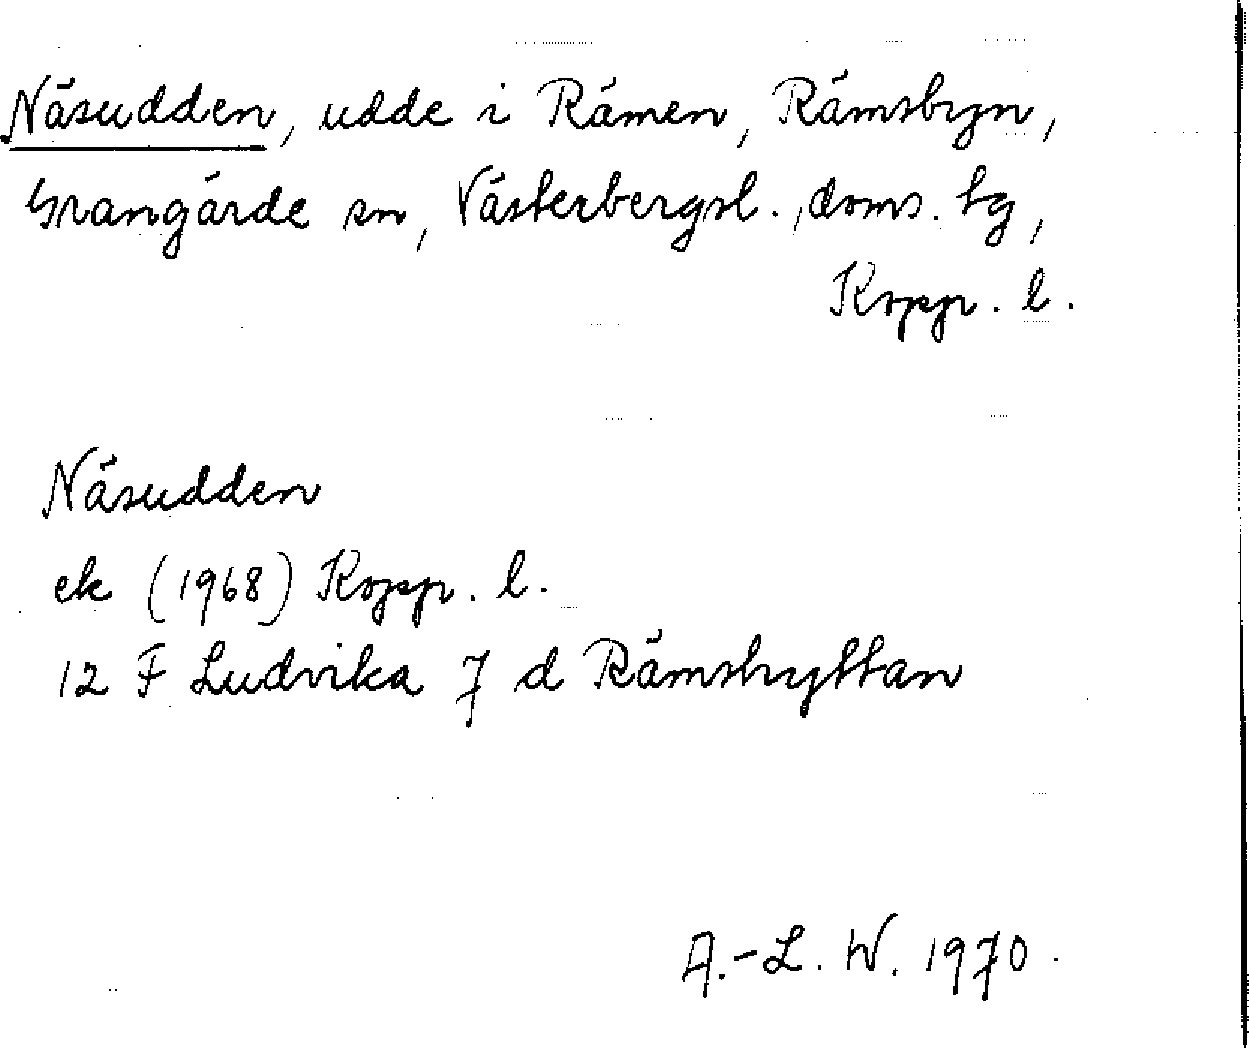 Näsudden, udde i Rämen, Rämsbyn,
Grangärde sn, Västerbergsl., doms. tg,
Kopp. l.
Näsudden
ek (1968) Kopp. l.
12 F Ludvika 7 d Rämshyttan
A.-L. W. 1970.